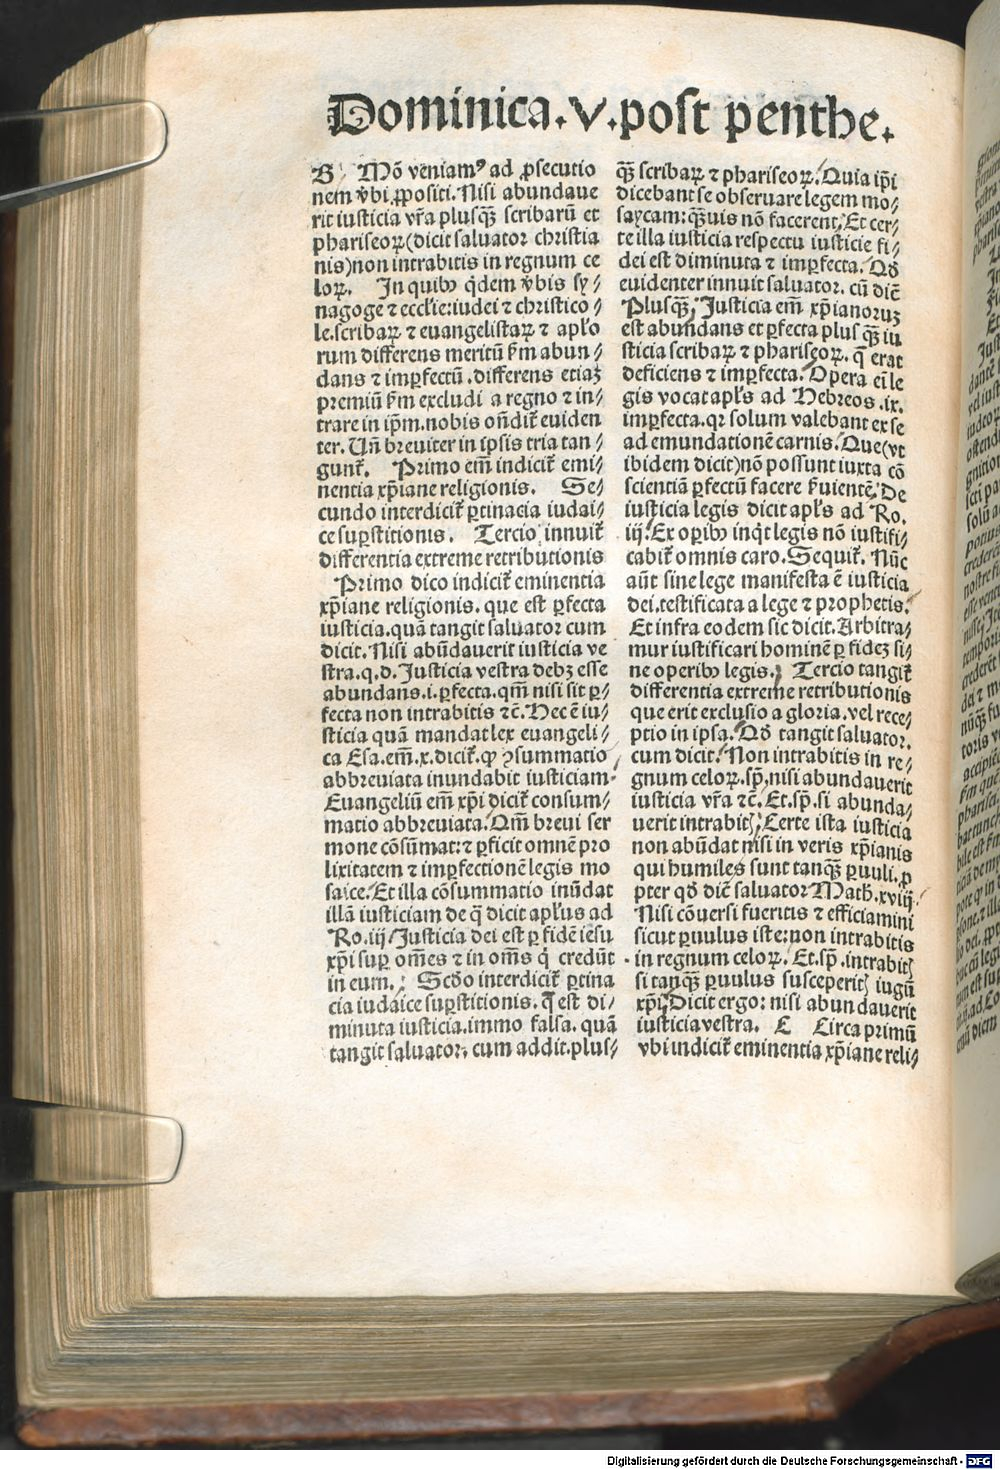 Dominica.v.post penthe.
B Mō veniamꝰ ad ꝓsecutio
nem v̄bi ꝓpositi. Nisi abundaue
rit iusticia vr̄a plusqȝ̄ scribarū et
phariseoꝝ(dicit saluator christia
nis)non intrabitis in regnum ce
loꝝ. In quibꝰ q̄dem v̄bis sy⸗
nagoge ⁊ eccl̄ie:iudei ⁊ christico⸗
le.scribaꝝ ⁊ euangelistaꝝ ⁊ apl̄o
rum differens meritū ẜm abun⸗
dans ⁊ imꝑfectū.differens etiaȝ
premiū ẜm excludi a regno ⁊ in⸗
trare in ip̄m.nobis on̄dit᷑ euiden
ter. Un̄ breuiter in ipsis tria tan⸗
gunt᷑. Primo em̄ indicit᷑ emi⸗
nentia xp̄iane religionis. Se⸗
cundo interdicit᷑ ꝑtinacia iudai⸗
ce suꝑstitionis. Tercio innuit᷑
differentia extreme retributionis
Primo dico indicit᷑ eminentia
xp̄iane religionis. que est ꝑfecta
iusticia.quā tangit saluator cum
dicit. Nisi abūdauerit iusticia ve
stra.q.d. Iusticia vestra debȝ esse
abundans.i.ꝑfecta.qm̄ nisi sit ꝑ⸗
fecta non intrabitis ⁊c̄. Hec ē iu⸗
sticia quā mandat lex euangeli⸗
ca Esa.em̄.x.dicit᷑.ꝙ ꝯsummatio
abbreuiata inundabit iusticiam.
Euangeliū em̄ xp̄i dicit᷑ consum⸗
matio abbreuiata. Qm̄ breui ser
mone cōsūmat:⁊ ꝑficit omnē pro
lixitatem ⁊ imꝑfectionē legis mo
saice. Et illa cōsummatio inūdat
illā iusticiam de q̄ dicit apl̄us ad
Ro.iij Iusticia dei est ꝑ fidē iesu
xp̄i suꝑ om̄es ⁊ in om̄s q̄ credūt
in eum. Scd̄o interdicit᷑ ꝑtina
cia iudaice suꝑstitionis. q̄ est di⸗
minuta iusticia.immo falsa. quā
tangit saluator. cum addit.plus⸗
qȝ̄ scribaꝝ ⁊ phariseoꝝ. Quia ip̄i
dicebant se obseruare legem mo⸗
saycam:qȝ̄uis nō facerent. Et cer⸗
te illa iusticia respectu iusticie fi⸗
dei est diminuta ⁊ imꝑfecta. Qd̄
euidenter innuit saluator. cū dic̄
Plusqȝ̄. Iusticia em̄ xp̄ianoruȝ
est abundans et ꝑfecta plus qȝ̄ iu
sticia scribaꝝ ⁊ phariseoꝝ. q̄ erat
deficiens ⁊ imꝑfecta. Opera em̄ le
gis vocat apl̄s ad Hebreos .ix.
imꝑfecta.qꝛ solum valebant ex se
ad emundationē carnis. Que(vt
ibidem dicit)nō possunt iuxta cō
scientiā ꝑfectū facere ẜuientē. De
iusticia legis dicit apl̄s ad Ro.
iij. Ex oꝑibꝰ inqͥt legis nō iustifi⸗
cabit᷑ omnis caro. Sequit᷑. Nūc
aūt sine lege manifesta ē iusticia
dei.testificata a lege ⁊ prophetis.
Et infra eodem sic dicit. Arbitra⸗
mur iustificari hominē ꝑ fideȝ si⸗
ne operibꝰ legis. Tercio tangit᷑
differentia extreme retributionis
que erit exclusio a gloria. vel rece⸗
ptio in ipsa. Qd̄ tangit saluator.
cum dicit. Non intrabitis in re⸗
gnum celoꝝ.sp̄.nisi abundauerit
iusticia vr̄a ⁊c̄. Et.sp̄.si abunda⸗
uerit intrabitꝭ. Certe ista iusticia
non abūdat nisi in veris xp̄ianis
qui humiles sunt tanqȝ̄ ꝑuuli. ꝓ
pter qd̄ dic̄ saluator Math̄.xviij.
Nisi cōuersi fueritis ⁊ efficiamini
sicut ꝑuulus iste:non intrabitis
in regnum celoꝝ. Et.sp̄.intrabitꝭ
si tanqȝ̄ ꝑuulus susceperitꝭ iugū
xp̄i. Dicit ergo: nisi abundauerit
iusticia vestra. C Circa primū
vbi indicit᷑ eminentia xp̄iane reli⸗
Digitalisierung gefördert durch die Deutsche Forschungsgemeinschaft - DFG